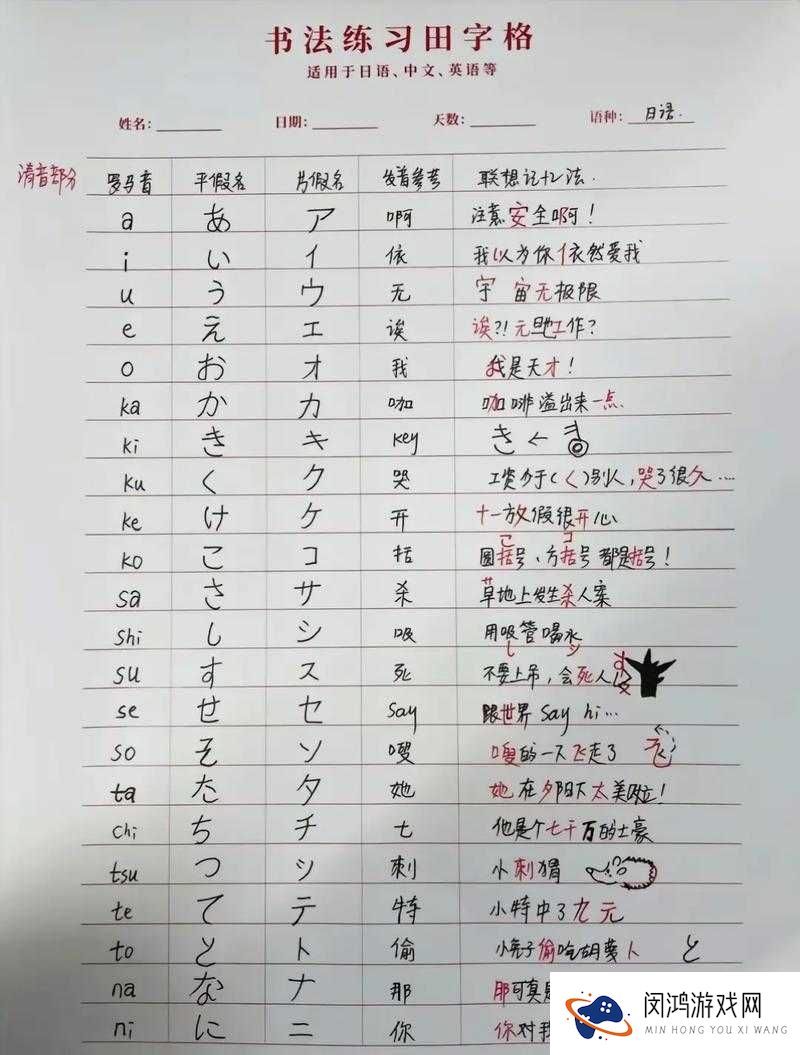 书法练习田字格
适用于日语、中文、英语等
姓名: 日期: 天数: 语种: 日语.
清音部分 罗马音 平假名 片假名 发音参考 联想记忆法.
a あ ア 啊 注意安全啊!
i い イ 依 我以为你依然爱我
u う ウ 无 宇宙无极限
e え エ 诶 诶?! 元旦工作?
o お オ 我 我是天才!
ka か カ 咖 咖啡溢出来一点.
ki き キ key き ←
ku く ク 哭 工资少于(く)别人,哭了很久....
ke け ケ 开 十一放假很开心
ko こ コ 括 圆括号、方括号都是括号!
こ コ
sa さ サ 杀 草地上发生杀人案
shi し シ 吸 用吸管喝水
し シ
su す ス 死 不要上吊,会死人 す
se せ セ say 跟世界 say hi...
so そ ソ 嗖 嗖的一下飞走了 飞
ta た タ 她 她在夕阳下太美啦!
chi ち チ 七 他是个七千万的土豪
tsu つ ツ 刺 小刺猬
te て テ 特 小特中了九元
to と ト 偷 小兔子偷吃胡萝卜 と
na な ナ 那 那可真是
ni に ニ 你 你对我
闵鸿游戏网
MIN HONG YOU XI WANG